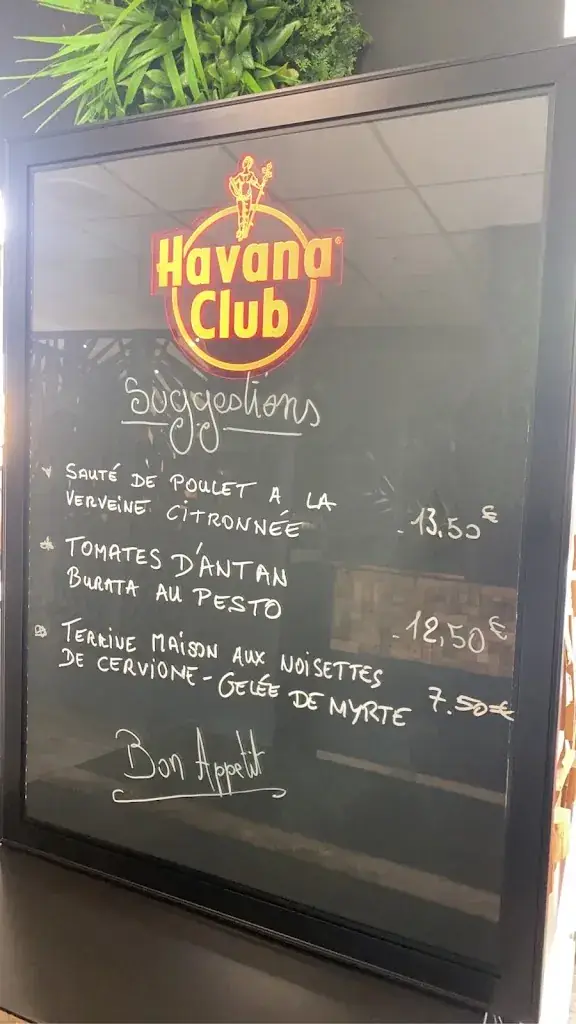 Havana
Club
Suggestions
SAUTÉ DE POULET A LA
VERVEINE CITRONNÉE
- 13.50€
TOMATES D'ANTAN
BURATA AU PESTO
- 12,50€
TERRINE MAISON AUX NOISETTES
DE CERVIONE - GELÉE DE MYRTE
7.50€
Bon Appetit